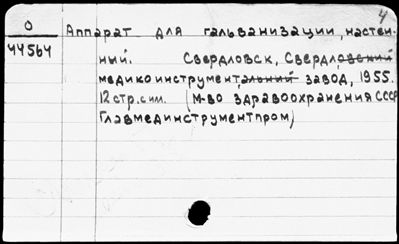 4
О Аппарат для гальванизации, настен-
44564 ный. Свердловск, Свердловский
медикоинструментальный завод, 1955.
12 стр. сим. (М-во здравоохранения СССР
Главмединструментпром)